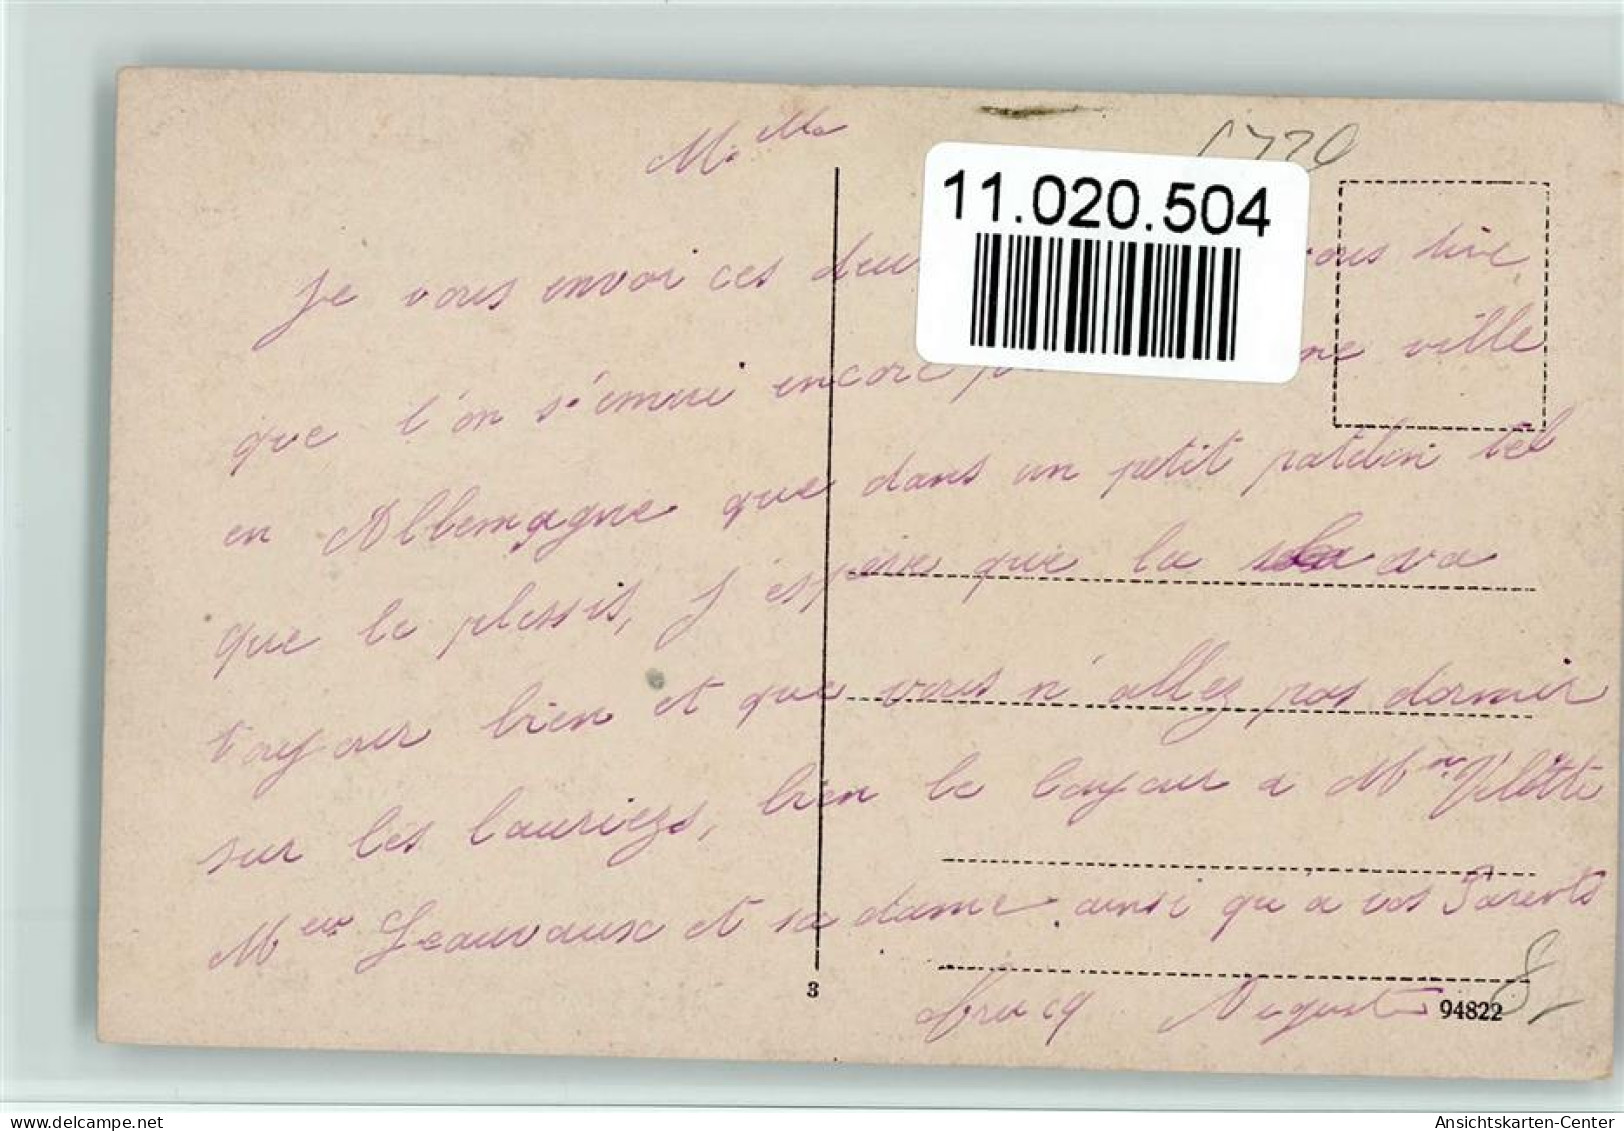 M.elle
5720
11.020.504
Je vous envoi ces deux vous dire
que l'on s'emui encore ne ville
en Allemagne que dans un petit patelin tel
que le plessis, J'espère que la va
toujour bien et que vous n'allez pas dormir
sur les lauriers, bien le bonjour a Mm Villette
Meur Leauvaux et sa dame ainsi qu'a vos Parents
Auguste
3
94822
8,-
www.delcampe.net
Ansichtskarten-Center